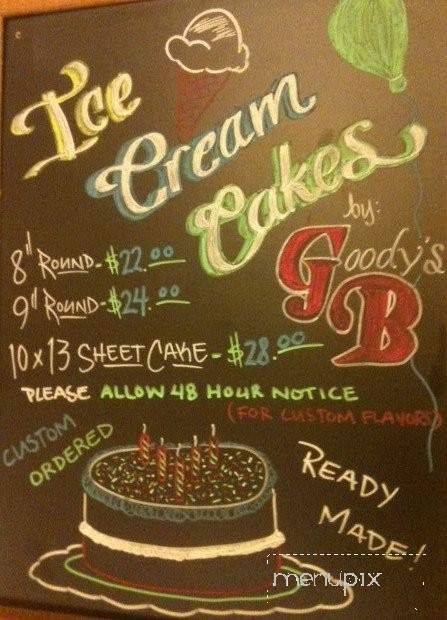 Ice
Cream
Cakes
by:
Goody's
GB
8" ROUND - $22.00
9" ROUND - $24.00
10 x 13 SHEET CAKE - $28.00
PLEASE ALLOW 48 HOUR NOTICE
(FOR CUSTOM FLAVORS)
CUSTOM
ORDERED
READY
MADE!
menupix